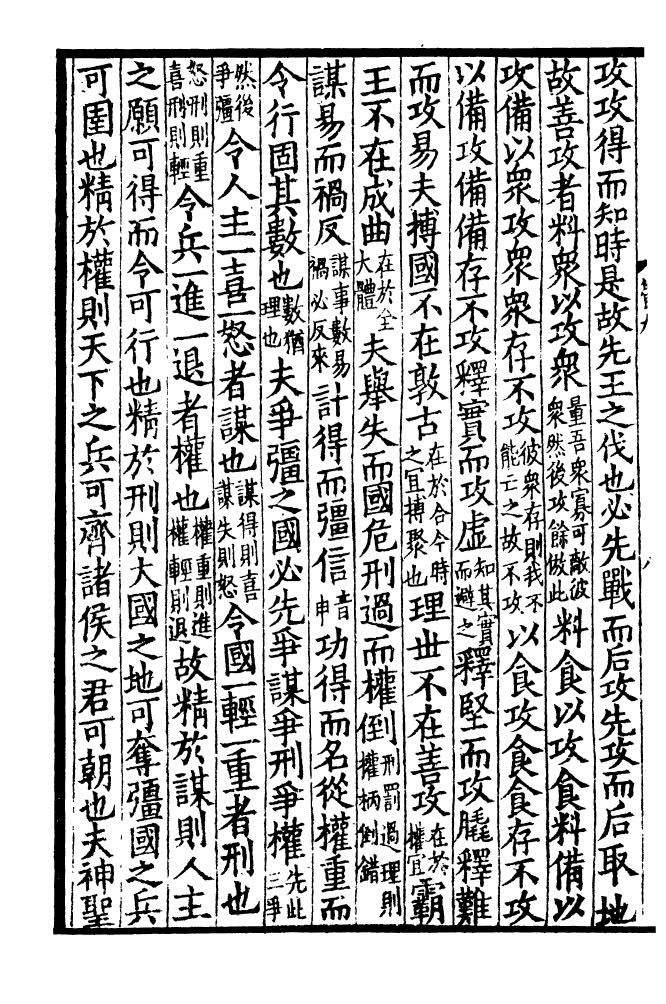 攻攻得而知時是故先王之伐也必先戰而后攻先攻而后取地
故善攻者料衆以攻衆量吾衆寡可敵彼衆然後攻餘倣此料食以攻食料備以
攻備以衆攻衆衆存不攻彼衆存則我不能亡之故不攻以食攻食食存不攻
以備攻備備存不攻釋實而攻虛知其實而避之釋堅而攻膬釋難
而攻易夫搏國不在敦古在於合今時之宜搏聚也理世不在善攻在於權宜霸
王不在成曲在於全大體夫舉失而國危刑過而權倒刑罰過理則權柄倒錯
謀易而禍反謀事數易禍必反來計得而彊信音申功得而名從權重而
令行固其數也數猶理也夫爭彊之國必先爭謀爭刑爭權先此三爭
然後爭彊令人主一喜一怒者謀也謀得則喜謀失則怒令國一輕一重者刑也
怒刑則重喜刑則輕令兵一進一退者權也權重則進權輕則退故精於謀則人主
之願可得而令可行也精於刑則大國之地可奪彊國之兵
可圉也精於權則天下之兵可齊諸侯之君可朝也夫神聖